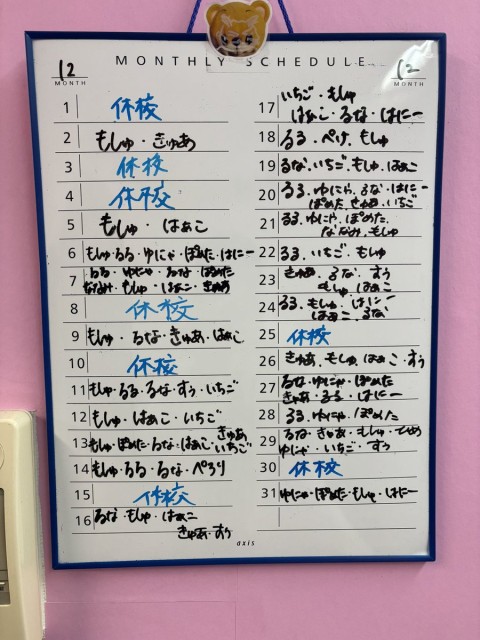 MONTHLY SCHEDULE
12 MONTH
12 MONTH
1 休校
2 もしゅ・きゅあ
3 休校
4 休校
5 もしゅ・はぁこ
6 もしゅ・るる・ゆにゃ・ぽめた・はにー
7 るる・ゆにゃ・るな・ぽめた
ななみ・もしゅ・はぁこ・きゅあ
8 休校
9 もしゅ・るな・きゅあ・はぁこ
10 休校
11 もしゅ・るる・るな・すぅ・いちご
12 もしゅ・はぁこ・いちご
13 もしゅ・ぽめた・るな・はぁこ・きゅあ
いちご
14 もしゅ・るる・るな・ぺろり
15 休校
16 るな・もしゅ・はぁこ
きゅあ・すぅ
17 いちご・もしゅ
はぁこ・るな・はにー
18 るる・ぺけ・もしゅ
19 るな・いちご・もしゅ・はぁこ
20 るる・ゆにゃ・るな・はにー
ぽめた・きゅあ・いちご
21 るる・ゆにゃ・ぽめた
ななみ・もしゅ
22 るる・いちご・もしゅ
23 きゅあ・るな・すぅ
もしゅ・はぁこ
24 るる・もしゅ・はにー
はぁこ・るな
25 休校
26 きゅあ・もしゅ・はぁこ・すぅ
27 るな・ゆにゃ・ぽめた
きゅあ・るる・はにー
28 るる・ゆにゃ・ぽめた
29 るな・きゅあ・もしゅ
ゆにゃ・いちご・すぅ
30 休校
31 ゆにゃ・ぽめた・もしゅ・はにー
axis